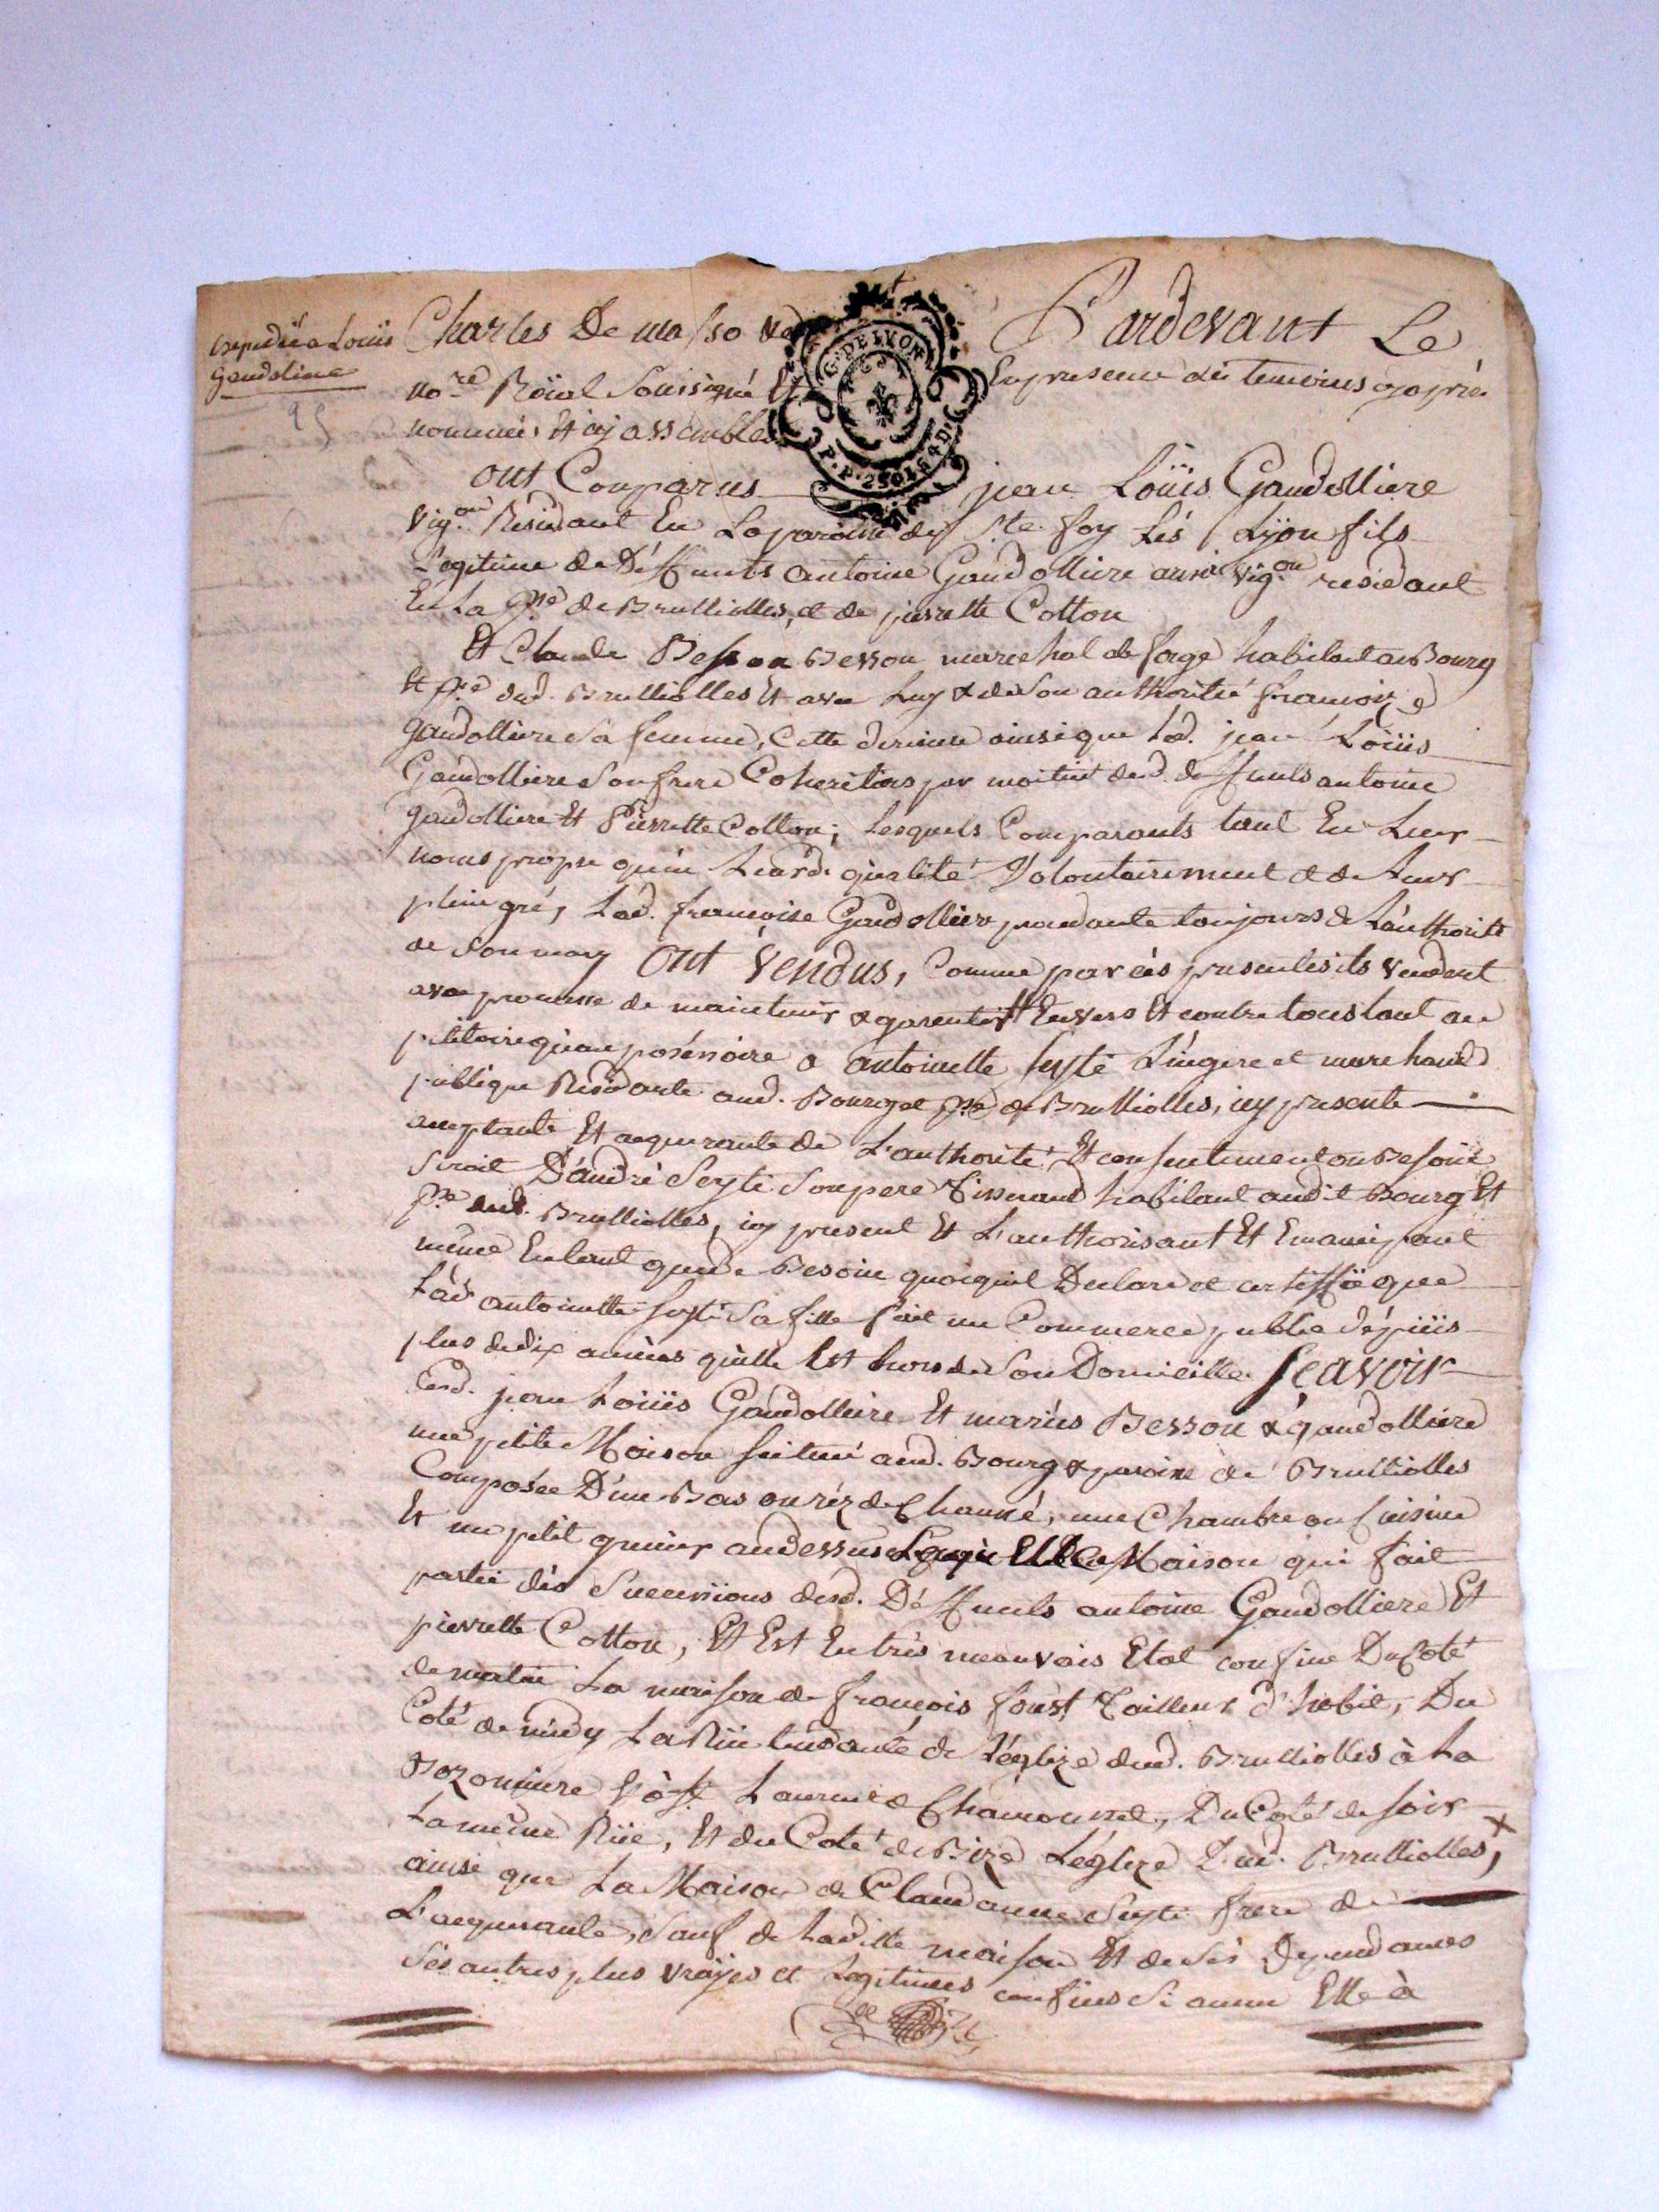 expediée a Louis
Gaudoline
Pardevant Le
Charles De masso
G. DE LYON
no.re Roïal Soussigné Et En presence des temoins cy aprés
P.P. 2 SOLS 4 D
nommés Et cy assemblés
Ont Comparus jean Loüis Gaudolliere
vig.on Residant En La paroisse de Ste. foy Lés Lÿon fils
Legitime de Déffunts antoine Gaudolliere aussi vig.on residant
En La p.sse de Brulliolles, et de pierrette Cotton
Et Claude Besson marechal de forge habitant au Bourg
Et p.sse dud. Brulliolles Et avec Luy & de Son authorité francoize
gaudolliere Sa femme, Cette derniere ainsi que Led. jean Loüis
Gaudolliere Son frere Coheritiers par moitié desd. deffunts antoine
gaudolliere Et Pierrette Cotton; Lesquels Comparants tant En Leur
noms propre qu'en Leursd. qualité Volontairement et de Leur
plein gré, Lad. francoise Gaudolliere procedante toujours de L'authorité
de Son mary Ont Vendus, Comme par cés presentes ils vendent
avec promesse de maintenir & garentir Envers Et contre tous tant au
petitoire qu'au posésoire a antoinette Seyte Lingere et marchande
publique Residante aud. Bourg et p.sse de Brulliolles, icy presente
acceptante Et acquerante de L'authorité Et consentement ou Besoin
Seroit D'andré Seyte Son pere Tisserand habitant audit Bourg Et
p.sse dud. Brulliolles, icy present Et L'authorisant Et Emancipant
même En tant que de Besoin quoiqu'il Declare et certiffie que
Lad. antoinette Seyte Sa fille fait un Commerce public dépuis
plus de dix années qu'elle Est hors de Son Domicille. Sçavoir
Lesd. jean Loüis Gaudolliere Et mariés Besson & gaudolliere
une petite Maison Scituée aud. Bourg & paroisse de Brulliolles
Composée D'un Bas ou réz de Chaussé, une Chambre ou Cuisine
Et un petit grenier audessus Laquelle Maison qui fait
partie dés Successions desd. Déffunts antoine Gaudolliere Et
pierrette Cotton, Et Est En trés mauvais Etat confine Du Coté
de matin La maison de francois foust Tailleur d'habit, Du
Coté de midy La Rüe tendante de L'églize dud. Brulliolles à La
Du Coté de soir
La même Rüe, Et du Coté de Bize L'églize Dud. Brulliolles,
ainsi que La Maison de Seyte frere de
L'acquerante, Sauf de Laditte maison Et de Sés Dependances
Sés autres plus vrayes et Legitimes confins Si aucun Elle à